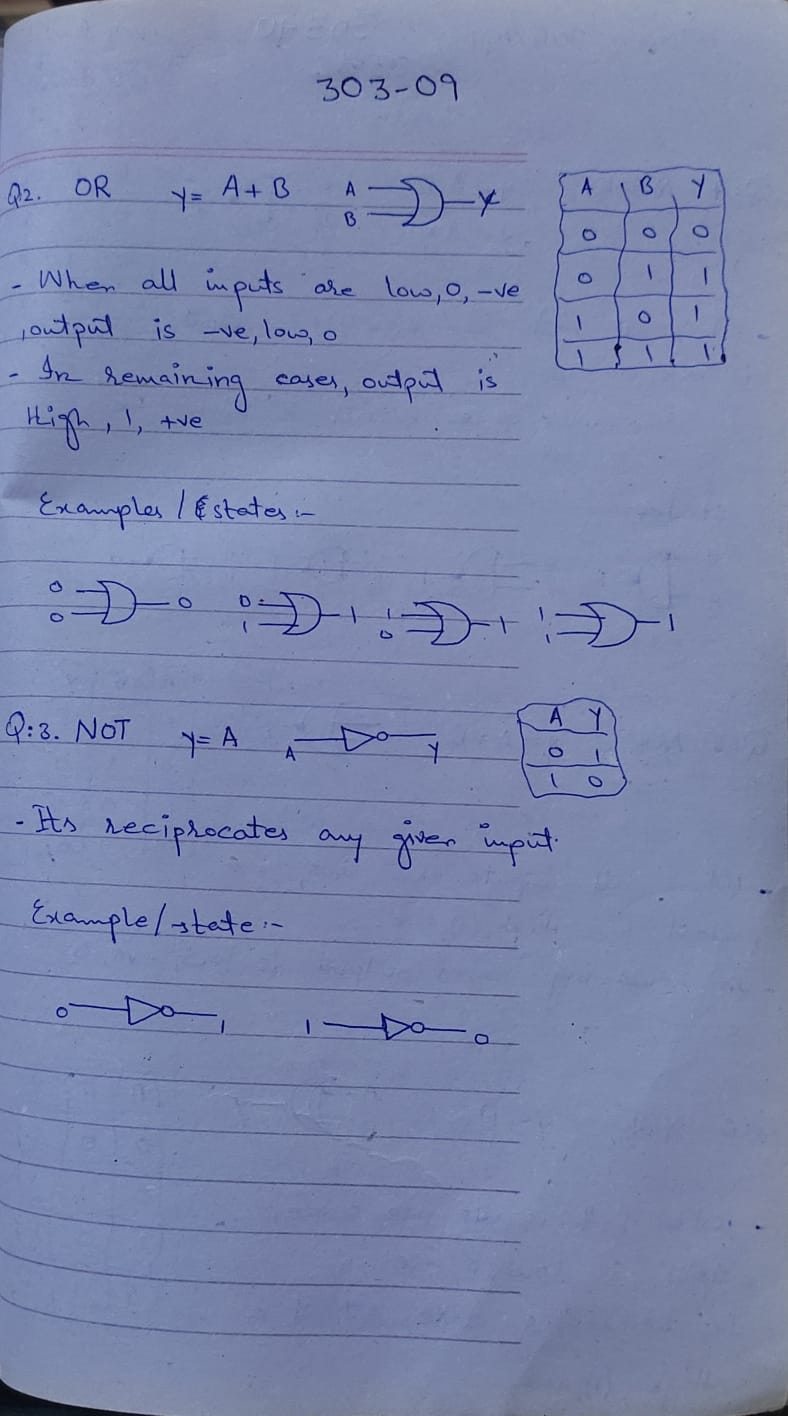 303-09
Q2. OR Y = A + B A B Y
A B Y
0 0 0
0 1 1
1 0 1
1 1 1
- When all inputs are low, 0, -ve
, output is -ve, low, 0
- In remaining cases, output is
High, 1, +ve
Examples / states :-
0 0 0 0 1 1 1 0 1 1 1 1
Q:3. NOT Y = A A Y
A Y
0 1
1 0
- Its reciprocates any given input.
Example / state :-
0 1 1 0